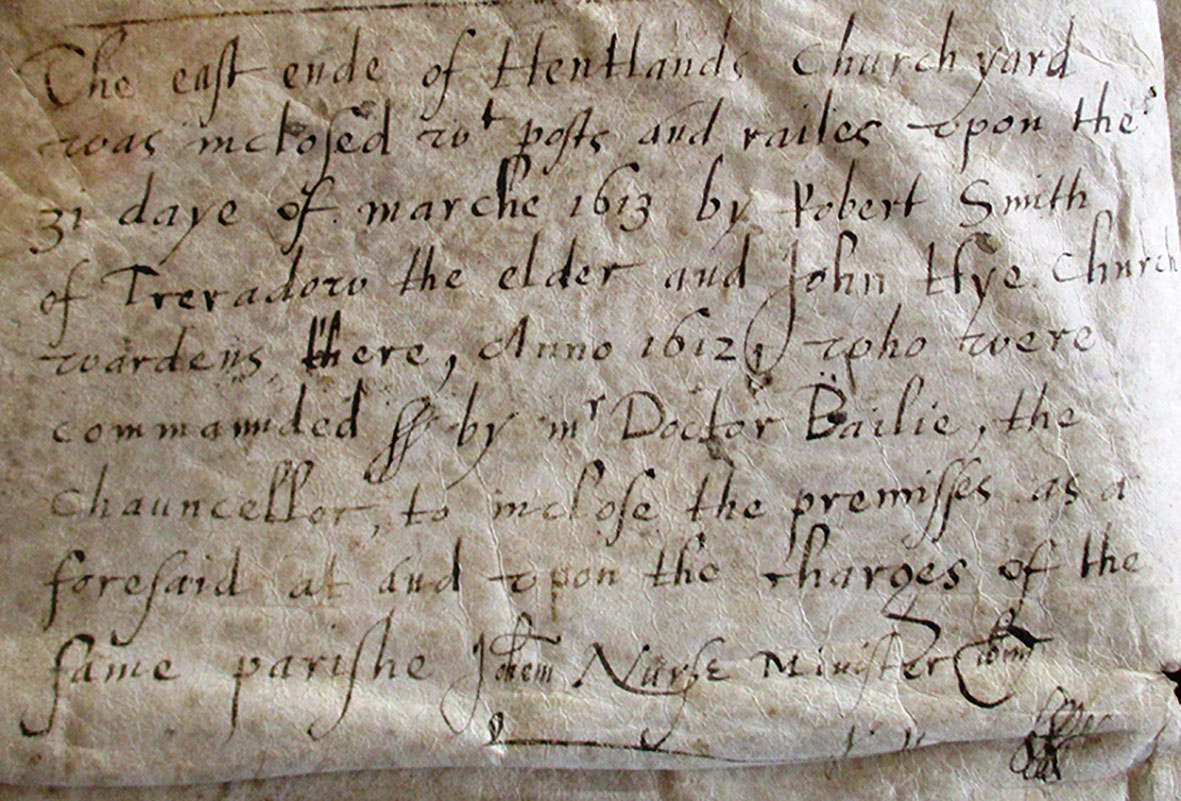 The east ende of Hentlands Church yard
was inclosed wt posts and railes vpon the
31 daye of marche 1613 by Robert Smith
of Treradow the elder and John Hye Church
wardens there, Anno 1612, who were
commaunded by mr Doctor Bailie, the
Chauncellor, to inclose the premisses as a
foresaid at and vpon the charges of the
same parishe Nurse Minister